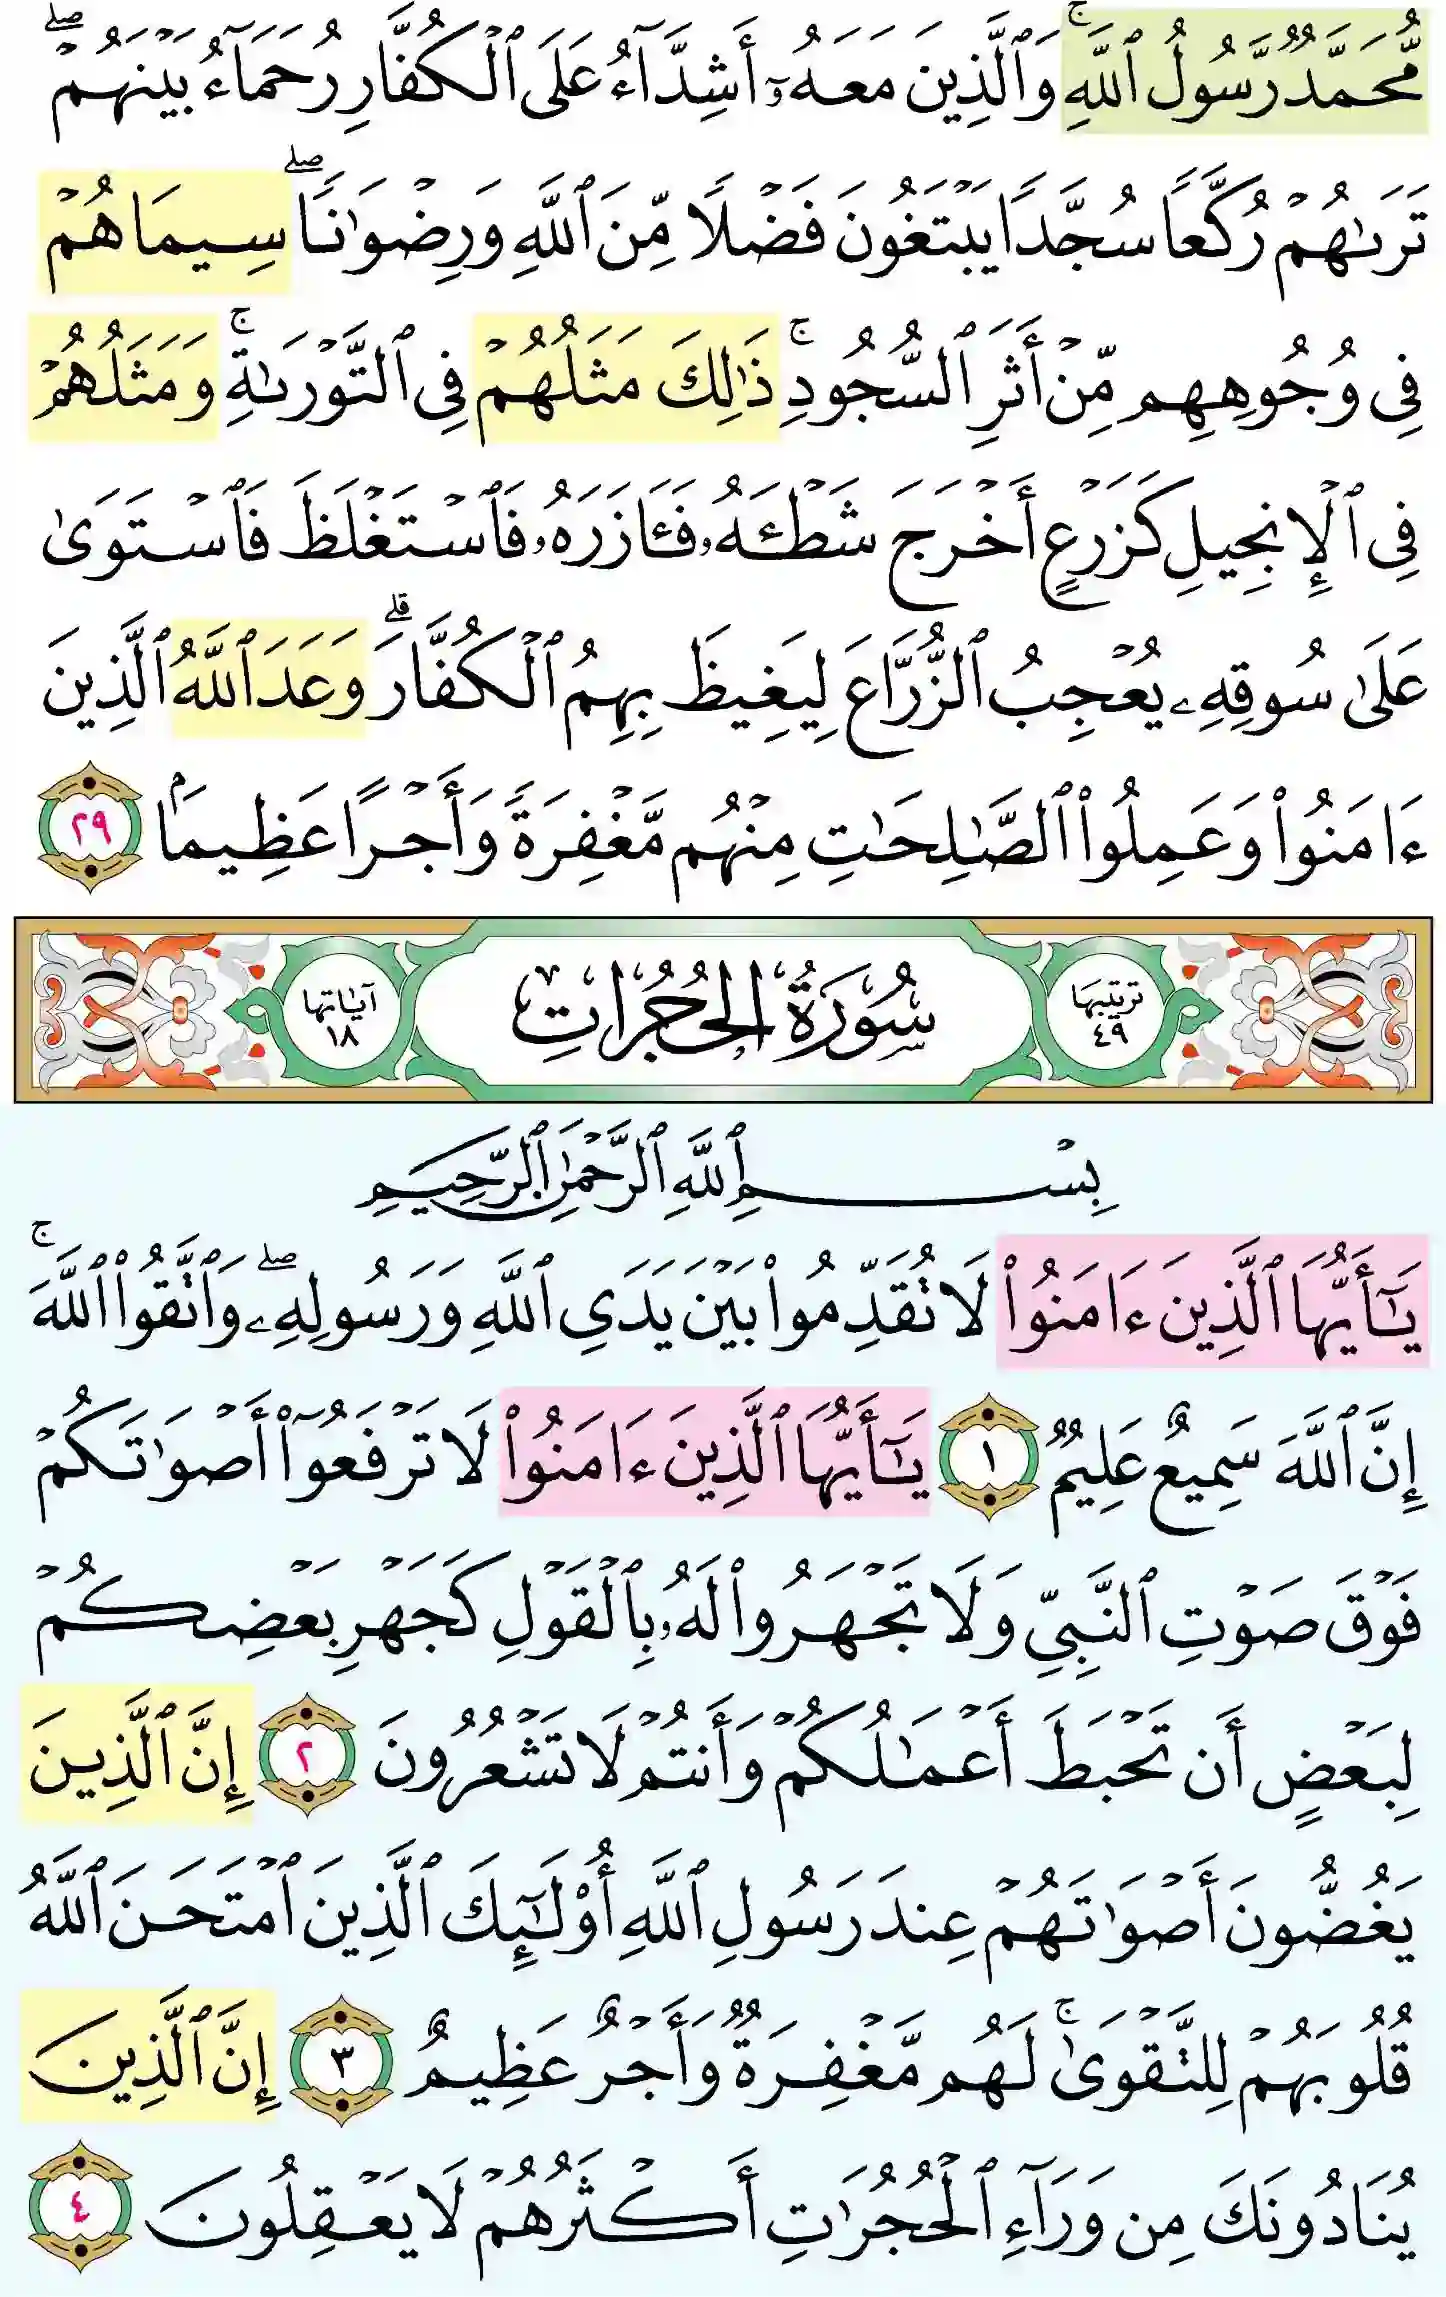 مُّحَمَّدٌ رَّسُولُ ٱللَّهِۚ وَٱلَّذِينَ مَعَهُۥٓ أَشِدَّآءُ عَلَى ٱلْكُفَّارِ رُحَمَآءُ بَيْنَهُمْۖ
تَرَىٰهُمْ رُكَّعًا سُجَّدًا يَبْتَغُونَ فَضْلًا مِّنَ ٱللَّهِ وَرِضْوَٰنًاۖ سِيمَاهُمْ
فِى وُجُوهِهِم مِّنْ أَثَرِ ٱلسُّجُودِۚ ذَٰلِكَ مَثَلُهُمْ فِى ٱلتَّوْرَىٰةِۚ وَمَثَلُهُمْ
فِى ٱلْإِنجِيلِ كَزَرْعٍ أَخْرَجَ شَطْـَٔهُۥ فَـَٔازَرَهُۥ فَٱسْتَغْلَظَ فَٱسْتَوَىٰ
عَلَىٰ سُوقِهِۦ يُعْجِبُ ٱلزُّرَّاعَ لِيَغِيظَ بِهِمُ ٱلْكُفَّارَۗ وَعَدَ ٱللَّهُ ٱلَّذِينَ
ءَامَنُوا۟ وَعَمِلُوا۟ ٱلصَّٰلِحَٰتِ مِنْهُم مَّغْفِرَةً وَأَجْرًا عَظِيمًۢا ٢٩
ترتيبها ٤٩ سُورَةُ الحُجُرَاتِ آيَاتها ١٨
بِسْمِ ٱللَّهِ ٱلرَّحْمَٰنِ ٱلرَّحِيمِ
يَٰٓأَيُّهَا ٱلَّذِينَ ءَامَنُوا۟ لَا تُقَدِّمُوا۟ بَيْنَ يَدَىِ ٱللَّهِ وَرَسُولِهِۦۖ وَٱتَّقُوا۟ ٱللَّهَۚ
إِنَّ ٱللَّهَ سَمِيعٌ عَلِيمٌ ١ يَٰٓأَيُّهَا ٱلَّذِينَ ءَامَنُوا۟ لَا تَرْفَعُوٓا۟ أَصْوَٰتَكُمْ
فَوْقَ صَوْتِ ٱلنَّبِىِّ وَلَا تَجْهَرُوا۟ لَهُۥ بِٱلْقَوْلِ كَجَهْرِ بَعْضِكُمْ
لِبَعْضٍ أَن تَحْبَطَ أَعْمَٰلُكُمْ وَأَنتُمْ لَا تَشْعُرُونَ ٢ إِنَّ ٱلَّذِينَ
يَغُضُّونَ أَصْوَٰتَهُمْ عِندَ رَسُولِ ٱللَّهِ أُو۟لَٰٓئِكَ ٱلَّذِينَ ٱمْتَحَنَ ٱللَّهُ
قُلُوبَهُمْ لِلتَّقْوَىٰۚ لَهُم مَّغْفِرَةٌ وَأَجْرٌ عَظِيمٌ ٣ إِنَّ ٱلَّذِينَ
يُنَادُونَكَ مِن وَرَآءِ ٱلْحُجُرَٰتِ أَكْثَرُهُمْ لَا يَعْقِلُونَ ٤